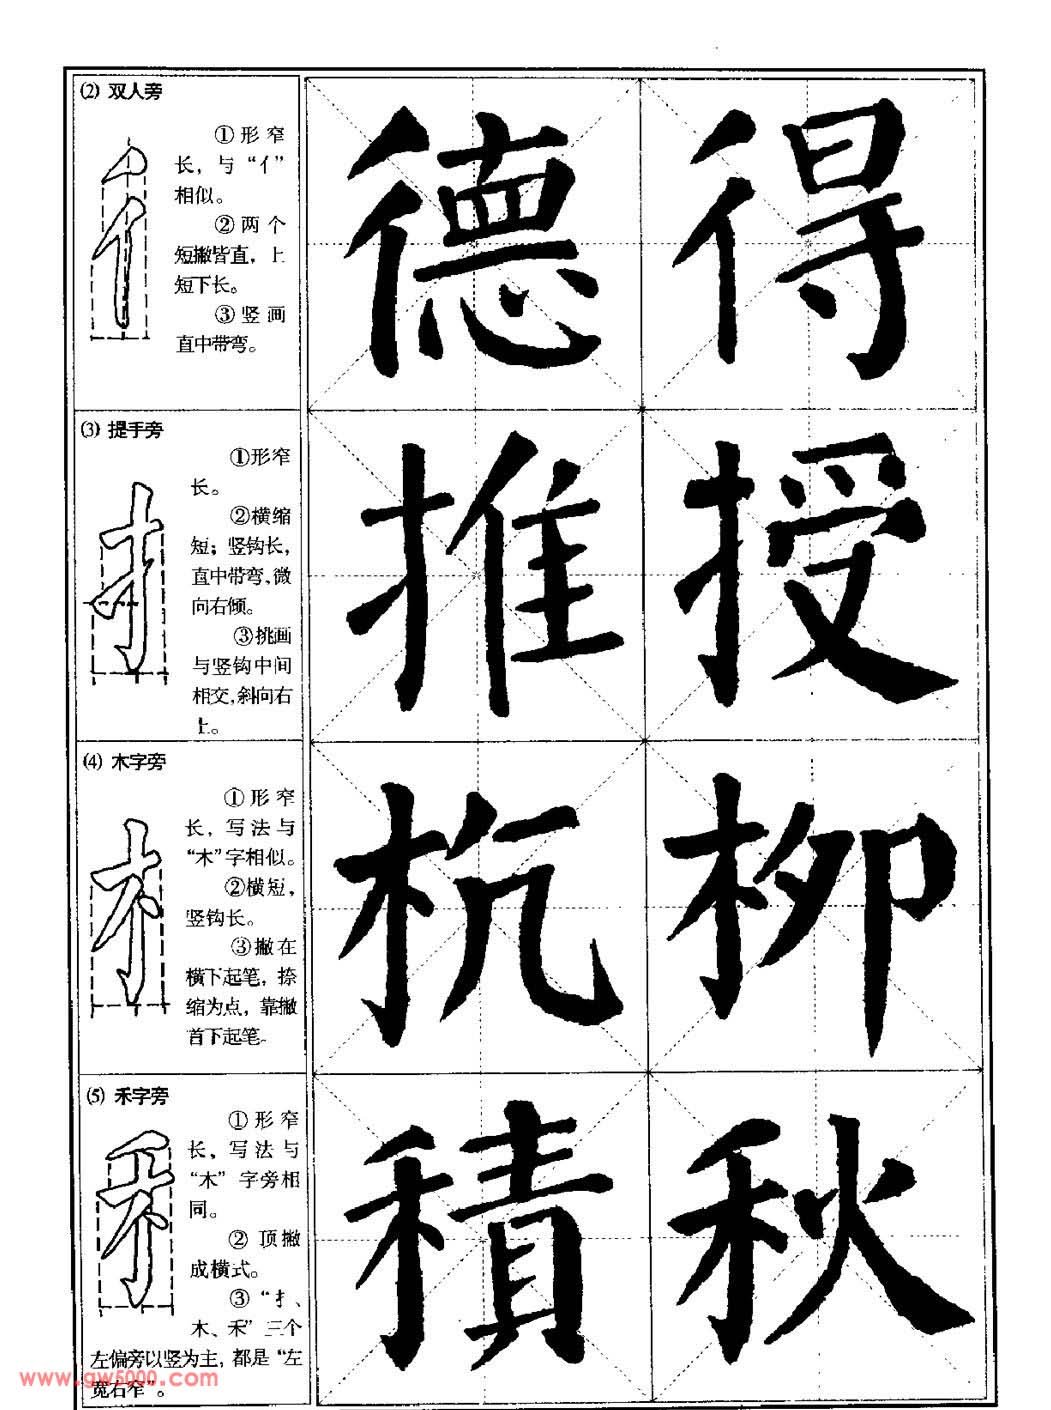 (2) 双人旁
①形窄
长，与“亻”
相似。
②两个
短撇皆直，上
短下长。
③竖画
直中带弯。
德 得
(3) 提手旁
①形窄
长。
②横缩
短；竖钩长，
直中带弯、微
向右倾。
③挑画
与竖钩中间
相交，斜向右
上。
推 授
(4) 木字旁
①形窄
长，写法与
“木”字相似。
②横短，
竖钩长。
③撇在
横下起笔，捺
缩为点，靠撇
首下起笔。
杭 柳
(5) 禾字旁
①形窄
长，写法与
“木”字旁相
同。
②顶撇
成横式。
③“扌、
木、禾”三个
左偏旁以竖为主，都是“左
宽右窄”。
積 秋
www.gw5000.com